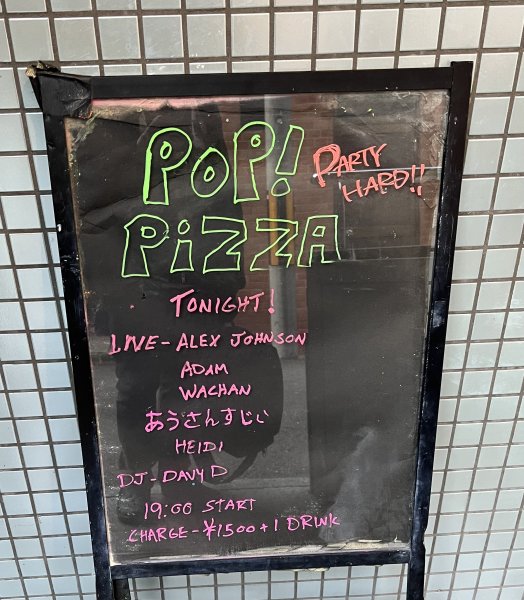 POP!
PARTY
HARD!!
PIZZA
TONIGHT!
LIVE - ALEX JOHNSON
ADAM
WACHAN
あうさんすじぃ
HEIDI
DJ - DAVY D
19:00 START
CHARGE - ¥1500 + 1 DRINK